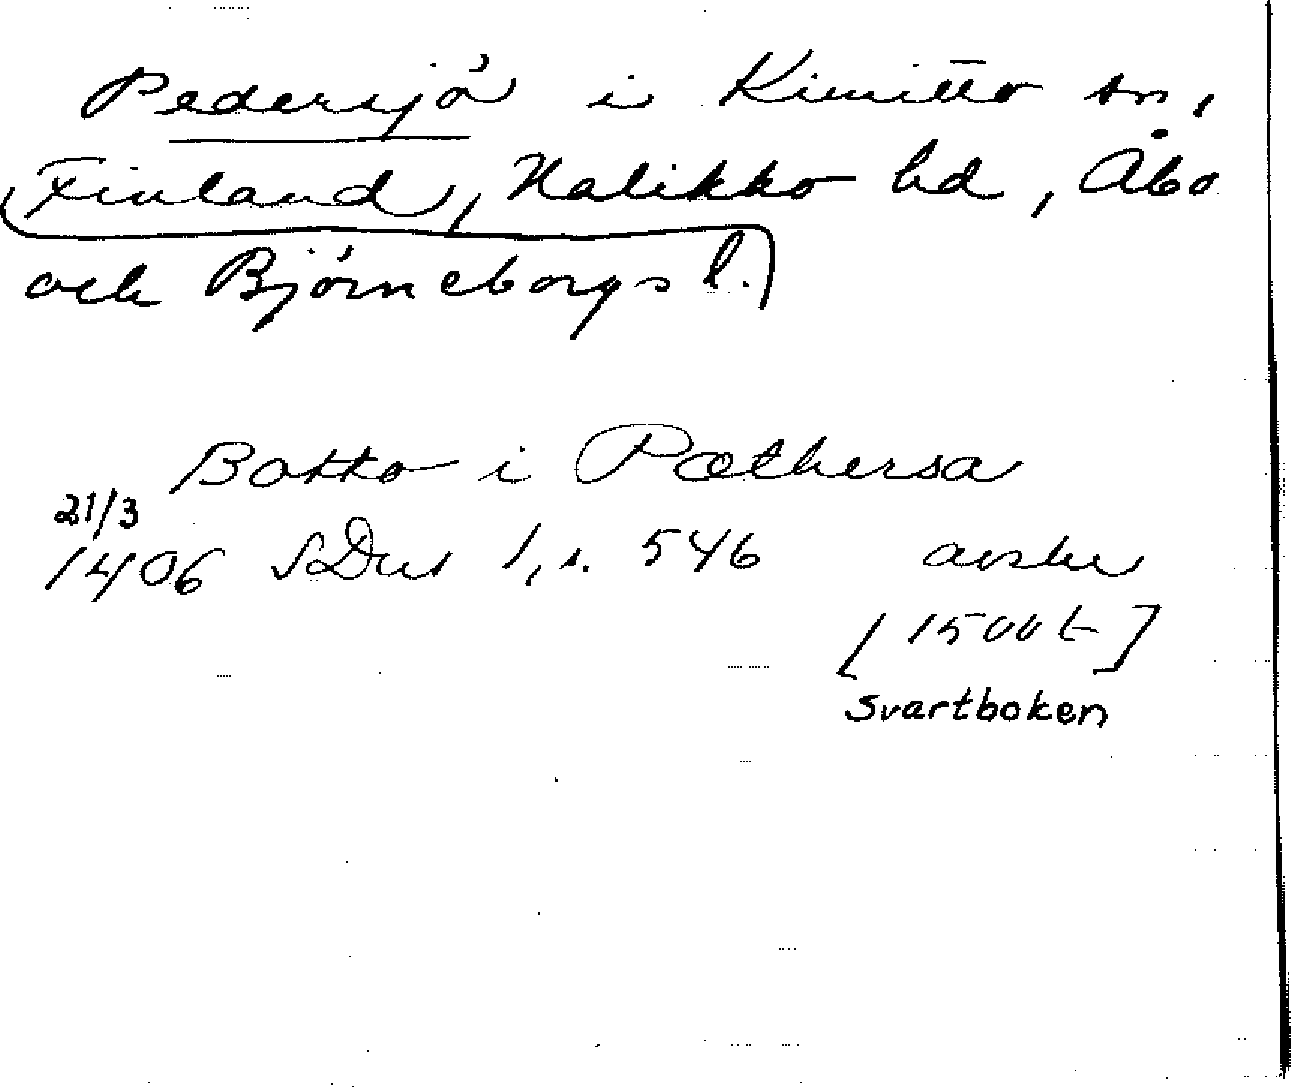 Pedersjö i Kimitto sn,
Finland, Halikko hd, Åbo
och Björneborgs l.)
Botko i Pæthersa
21/3
1406 SDns 1, s. 546 avskr
[1500t]
Svartboken